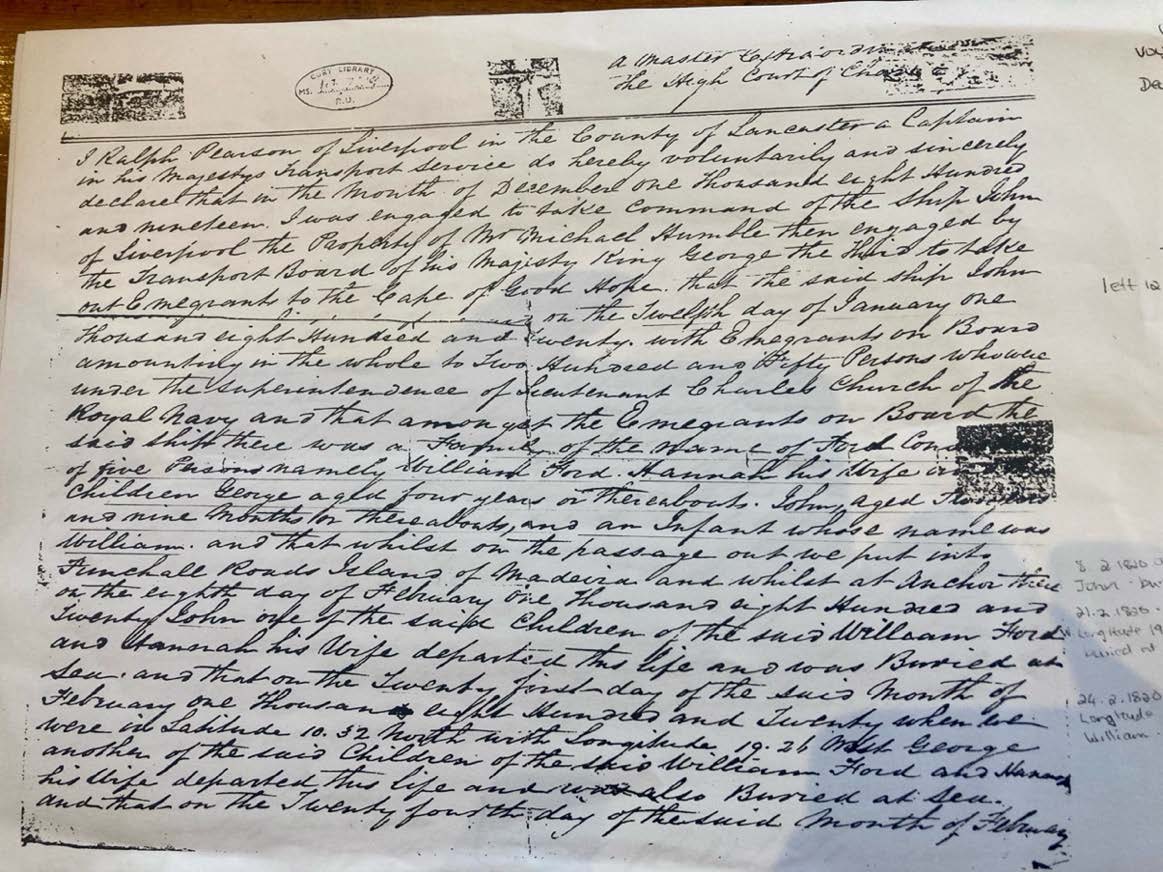 CORY LIBRARY
MS.
R.U.
a Master Extraordin
the High Court of Chan
I Ralph Pearson of Liverpool in the County of Lancaster a Captain
in his Majestys Transport Service do hereby voluntarily and sincerely
declare that in the Month of December one Thousand eight Hundred
and nineteen I was engaged to take Command of the Ship John
of Liverpool the Property of Mr Michael Humble then engaged by
the Transport Board of his Majesty King George the Third to take
out Emegrants to the Cape of Good Hope. that the said ship John
on the Twelfth day of January one
Thousand eight Hundred and Twenty. with Emegrants on Board
amounting in the whole to Two Hundred and Fifty Persons who were
under the Superintendence of Lieutenant Charles Church of the
Royal Navy and that amongst the Emegrants on Board the
said ship there was a Family of the name of Ford Cons
of five Persons namely William Ford Hannah his Wife
Children George aged four years or thereabouts. John, aged
and nine Months or thereabouts, and an Infant whose name was
William. and that whilst on the passage out we put into
Funchall Roads Island of Madeira and whilst at Anchor there
on the eighth day of February one Thousand eight Hundred and
Twenty John one of the said Children of the said William Ford
and Hannah his Wife departed this life and was Buried at
Sea. and that on the Twenty first day of the said Month of
February one Thousand eight Hundred and Twenty when we
were in Latitude 10.32 North with Longitude 19.26 West George
another of the said Children of the said William Ford and Hannah
his Wife departed this life and was also Buried at Sea.
and that on the Twenty fourth day of the said Month of February
voy
Dec
left 12
8 2 1820
John
21.2.1820.
Longitude 19
buried at
24.2.1820
Longitude
William